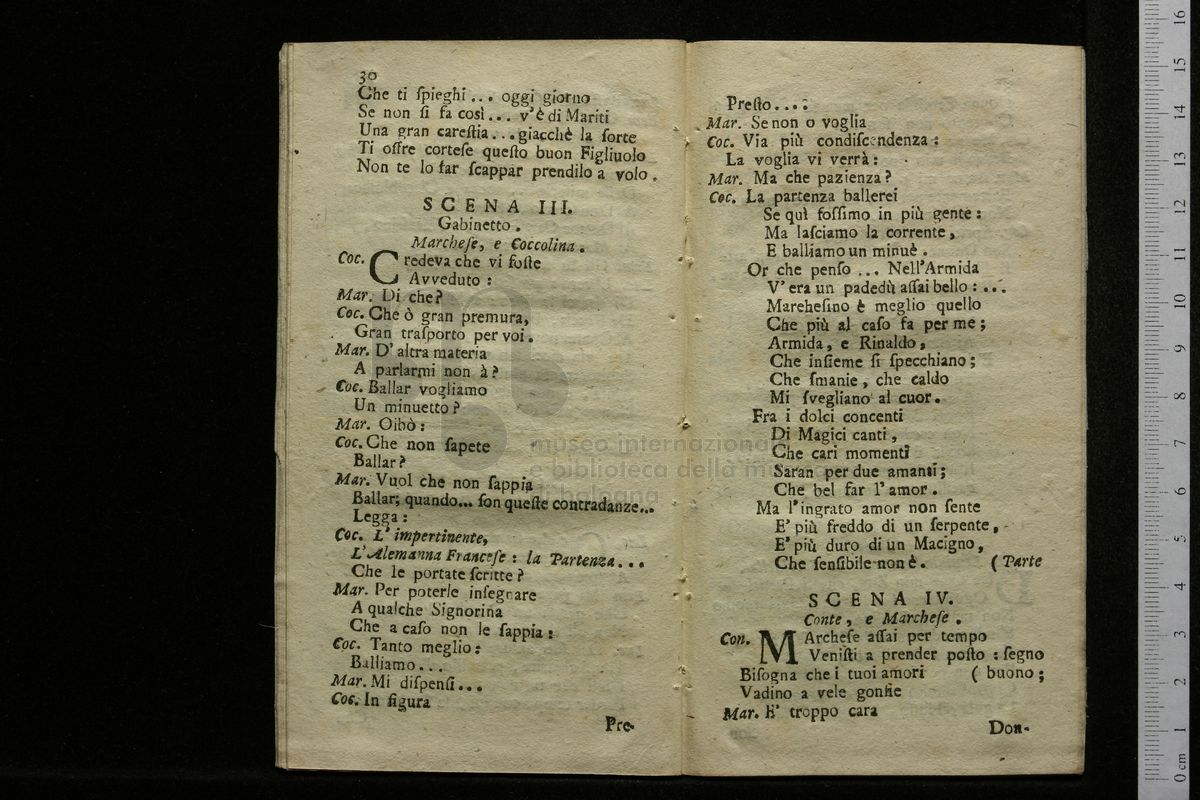 30
Che ti ſpieghi... oggi giorno
Se non ſi fa così... v'è di Mariti
Una gran careſtia...giacchè la ſorte
Ti offre corteſe queſto buon Figliuolo
Non te lo far ſcappar prendilo a volo.
SCENA III.
Gabinetto.
Marcheſe, e Coccolina.
Coc. Credeva che vi foſte
Avveduto:
Mar. Di che?
Coc. Che ò gran premura,
Gran traſporto per voi.
Mar. D'altra materia
A parlarmi non à?
Coc. Ballar vogliamo
Un minuetto?
Mar. Oibò:
Coc. Che non ſapete
Ballar?
Mar. Vuol che non ſappia
Ballar; quando... ſon queſte contradanze...
Legga:
Coc. L'impertinente,
L'Alemanna Franceſe: la Partenza...
Che le portate ſcritte?
Mar. Per poterle inſegnare
A qualche Signorina
Che a caſo non le ſappia:
Coc. Tanto meglio:
Balliamo...
Mar. Mi diſpenſi...
Coc. In figura
Pre-
Preſto...:
Mar. Se non o voglia
Coc. Via più condiſcendenza:
La voglia vi verrà:
Mar. Ma che pazienza?
Coc. La partenza ballerei
Se quì foſſimo in più gente:
Ma laſciamo la corrente,
E balliamo un minuè.
Or che penſo... Nell'Armida
V'era un padedù aſſai bello:...
Marcheſino è meglio quello
Che più al caſo fa per me;
Armida, e Rinaldo,
Che inſieme ſi ſpecchiano;
Che ſmanie, che caldo
Mi ſvegliano al cuor.
Fra i dolci concenti
Di Magici canti,
Che cari momenti
Saran per due amanti;
Che bel far l'amor.
Ma l'ingrato amor non ſente
E' più freddo di un ſerpente,
E' più duro di un Macigno,
Che ſenſibile non è. (Parte
SCENA IV.
Conte, e Marcheſe.
Con. MArcheſe aſſai per tempo
Veniſti a prender poſto: ſegno
Biſogna che i tuoi amori (buono;
Vadino a vele gonfie
Mar. E' troppo cara
Don-
museo internazionale
e biblioteca della musica
di bologna
0 cm 1 2 3 4 5 6 7 8 9 10 11 12 13 14 15 16